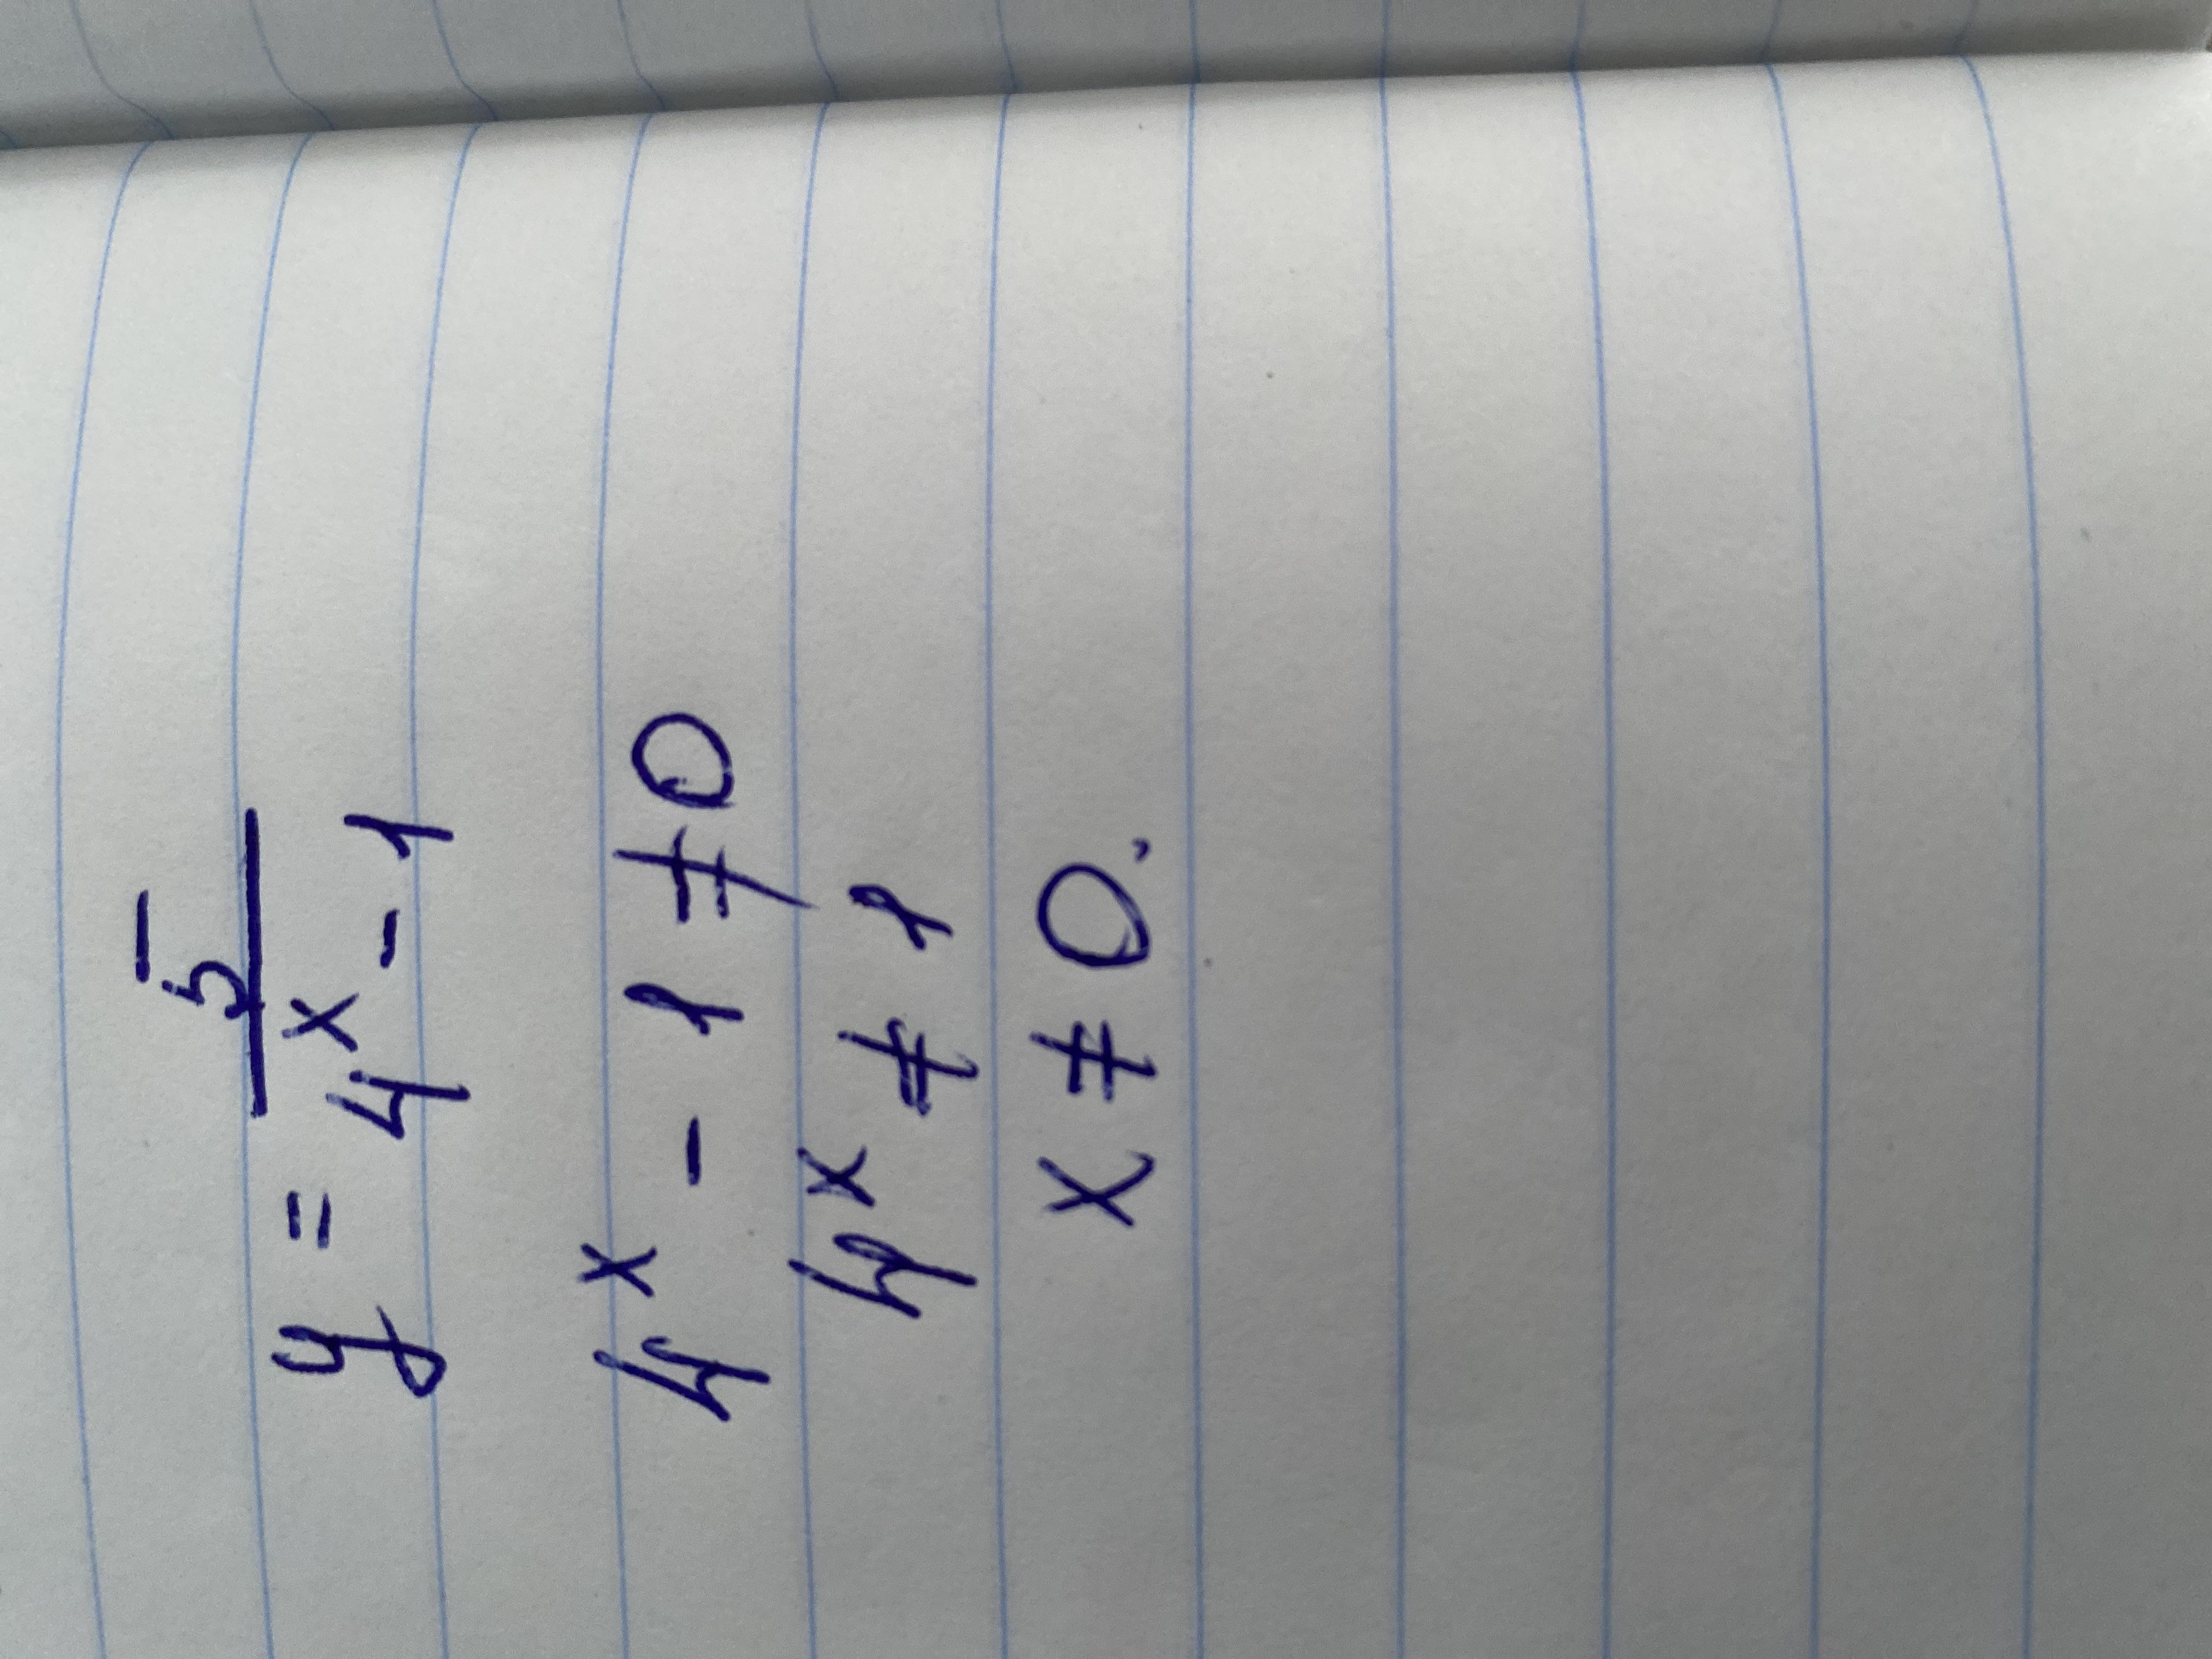 y = 5/(4^x - 1)
4^x - 1 ≠ 0
4^x ≠ 1
x ≠ 0.